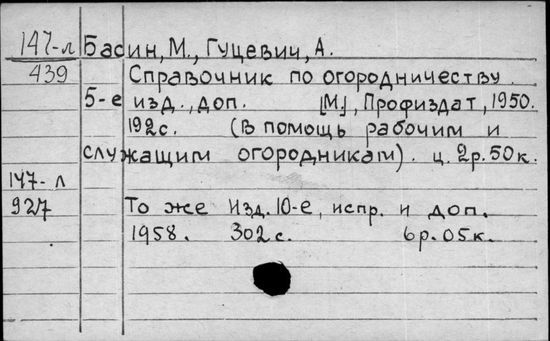 147-л Басин, М., Гуцевич, А.
439 Справочник по огородничеству.
5-е изд., доп. [М], Профиздат, 1950.
192с. (В помощь рабочим и
служащим огородникам). ц. 2р.50к.
147-л
927 То же Изд. 10-е, испр. и доп.
1958. 302с. 6р.05к.